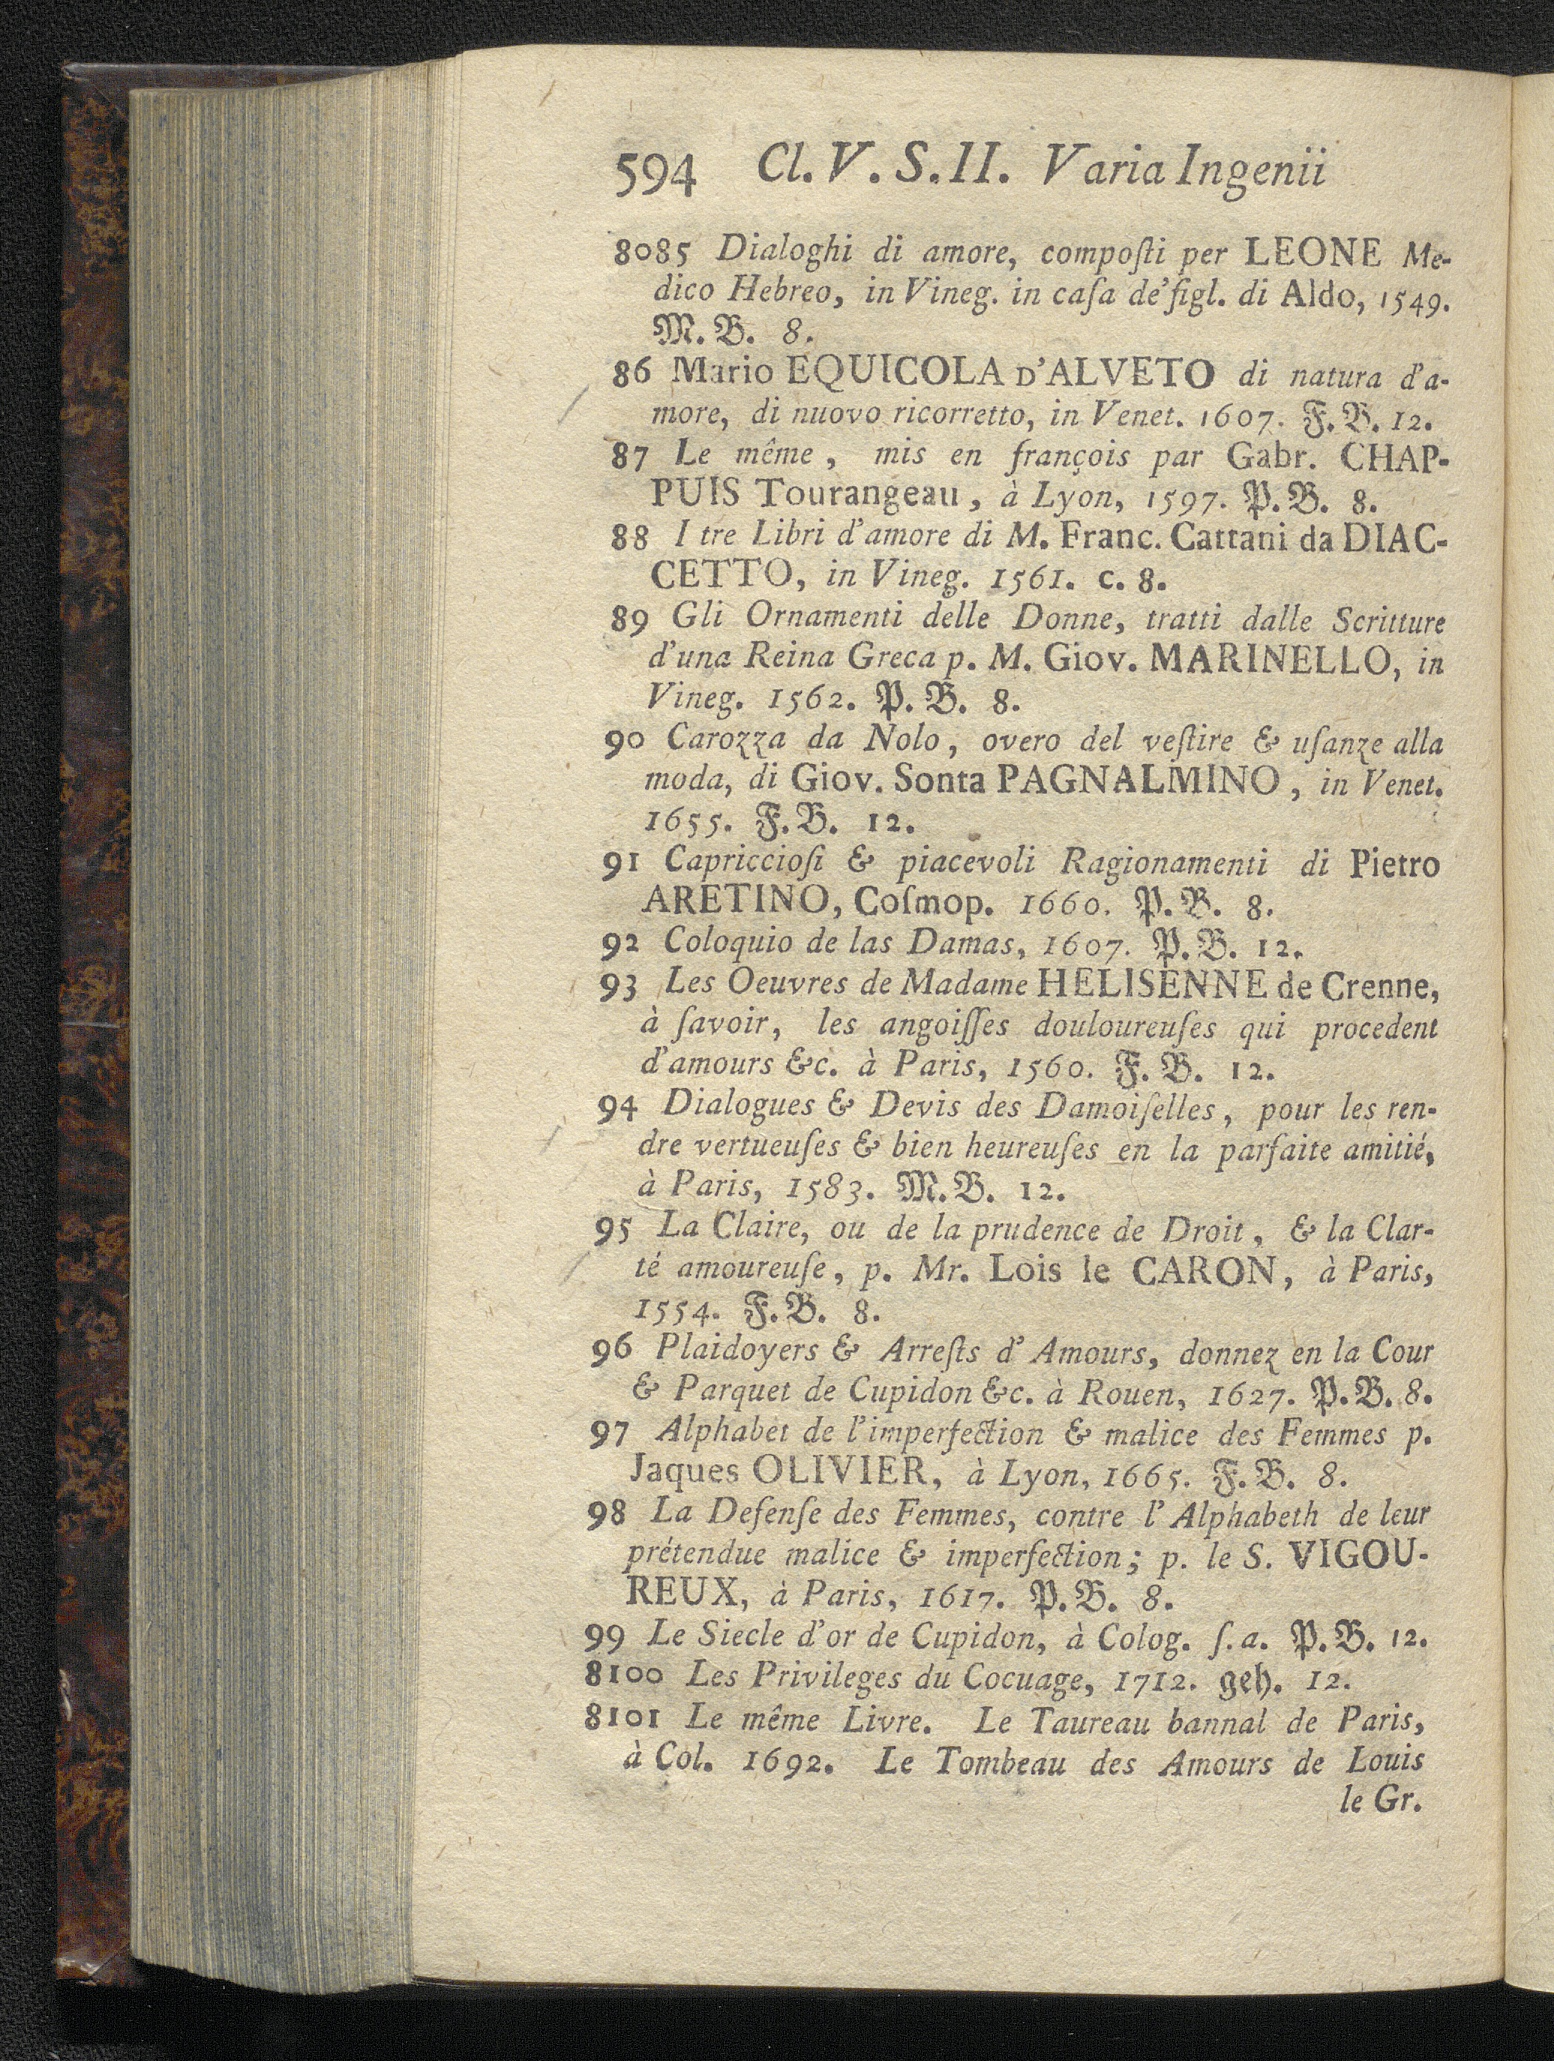 594 Cl. V. S. II. Varia Ingenii
8085 Dialoghi di amore, compoſti per LEONE Me-
dico Hebreo, in Vineg. in caſa de' figl. di Aldo, 1549.
M. B. 8.
86 Mario EQUICOLA D'ALVETO di natura d'a-
more, di nuovo ricorretto, in Venet. 1607. F. B. 12.
87 Le même, mis en françois par Gabr. CHAP-
PUIS Tourangeau, à Lyon, 1597. P. B. 8.
88 I tre Libri d'amore di M. Franc. Cattani da DIAC-
CETTO, in Vineg. 1561. C. 8.
89 Gli Ornamenti delle Donne, tratti dalle Scritture
d'una Reina Greca p. M. Giov. MARINELLO, in
Vineg. 1562. P. B. 8.
90 Carozza da Nolo, overo del veſtire & uſanze alla
moda, di Giov. Sonta PAGNALMINO, in Venet.
1655. F. B. 12.
91 Capriccioſi & piacevoli Ragionamenti di Pietro
ARETINO, Coſmop. 1660. P. B. 8.
92 Coloquio de las Damas, 1607. P. B. 12.
93 Les Oeuvres de Madame HELISENNE de Crenne,
à ſavoir, les angoiſſes douloureuſes qui procedent
d'amours &c. à Paris, 1560. F. B. 12.
94 Dialogues & Devis des Damoiſelles, pour les ren-
dre vertueuſes & bien heureuſes en la parfaite amitié,
à Paris, 1583. M. B. 12.
95 La Claire, ou de la prudence de Droit, & la Clar-
té amoureuſe, p. Mr. Lois le CARON, à Paris,
1554. F. B. 8.
96 Plaidoyers & Arreſts d'Amours, donnez en la Cour
& Parquet de Cupidon &c. à Rouen, 1627. P. B. 8.
97 Alphabet de l'imperfection & malice des Femmes p.
Jaques OLIVIER, à Lyon, 1665. F. B. 8.
98 La Defenſe des Femmes, contre l'Alphabeth de leur
prétendue malice & imperfection; p. le S. VIGOU-
REUX, à Paris, 1617. P. B. 8.
99 Le Siecle d'or de Cupidon, à Colog. ſ. a. P. B. 12.
8100 Les Privileges du Cocuage, 1712. geh. 12.
8101 Le même Livre. Le Taureau bannal de Paris,
à Col. 1692. Le Tombeau des Amours de Louis
le Gr.